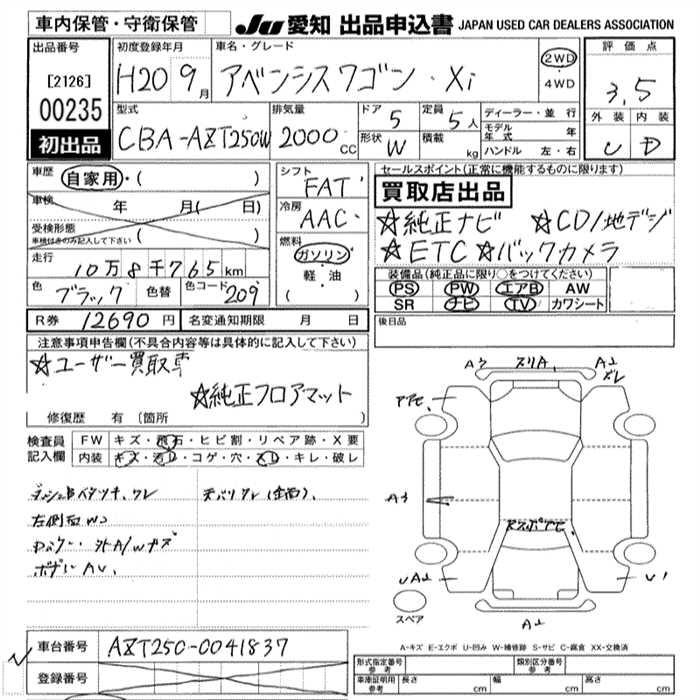 車内保管・守衛保管 JU 愛知 出品申込書 JAPAN USED CAR DEALERS ASSOCIATION
出品番号 初度登録年月 車名・グレード 評価点
[2126] H20 9月 アベンシスワゴン・Xi 2WD・4WD 3.5
00235 型式 排気量 ドア 定員 ディーラー・並行 外装 内装
初出品 CBA-AZT250W 2000cc 5 5人 モデル年式 年 C D
形状 W 積載 kg ハンドル 左・右
車歴 自家用・( ) シフト FAT セールスポイント(正常に機能するものに限ります)
車検 年 月( 日) 冷房 AAC 買取店出品
受検形態 ( ) ☆純正ナビ ☆CD/地デジ
車検付きのみ記入して下さい 燃料 ガソリン・軽・油 ( ) ☆ETC ☆バックカメラ
走行 10万8千765km 装備品(純正品に限り○をつけてください)
色 ブラック 色替 色コード 209 PS PW エアB AW
SR ナビ TV カワシート
R券 12690円 名変通知期限 月 日 後日品
注意事項申告欄(不具合内容等は具体的に記入して下さい)
☆ユーザー買取車
☆純正フロアマット
修復歴 有 [箇所
検査員記入欄 FW キズ・飛石・ヒビ割・リペア跡・X要
内装 キズ・汚レ・コゲ・穴・スレ・キレ・破レ
左側面W2
A3 A2
A3
UA2 U1
スペア
A2
A-キズ E-エクボ U-凹み W-補修跡 S-サビ C-腐食 XX-交換済
車台番号 AZT250-0041837
登録番号
形式指定番号 参考 類別区分番号 参考
車庫証明用 参考 長さ cm 幅 cm 高さ cm